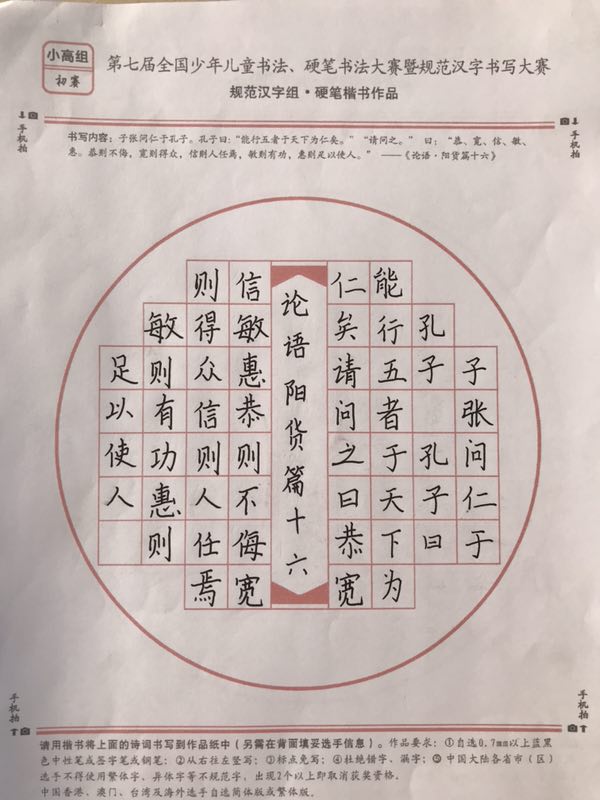 小高组
初赛
第七届全国少年儿童书法、硬笔书法大赛暨规范汉字书写大赛
规范汉字组·硬笔楷书作品
手机拍
手机拍
书写内容：子张问仁于孔子。孔子曰：“能行五者于天下为仁矣。”“请问之。”曰：“恭、宽、信、敏、
惠。恭则不侮，宽则得众，信则人任焉，敏则有功，惠则足以使人。”——《论语·阳货篇十六》
子张问仁于
孔子 孔子曰
能行五者于天下为
仁矣请问之曰恭宽
论语阳货篇十六
信敏惠恭则不侮宽
则得众信则人任焉
敏则有功惠则
足以使人
手机拍
手机拍
请用楷书将上面的诗词书写到作品纸中（另需在背面填妥选手信息）。作品要求：①自选0.7mm以上蓝黑
色中性笔或签字笔或钢笔；②从右往左竖写；③标点免写；④杜绝错字、漏字；⑤ 中国大陆各省市（区）
选手不得使用繁体字、异体字等不规范字，出现2个以上即取消获奖资格。
中国香港、澳门、台湾及海外选手自选简体版或繁体版。